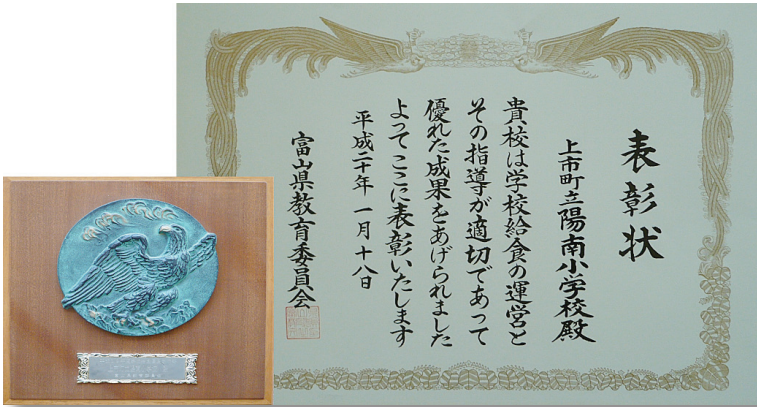 表彰状
上市町立陽南小学校殿
貴校は学校給食の運営と
その指導が適切であって
優れた成果をあげられました
よってここに表彰いたします
平成二十年一月十八日
富山県教育委員会